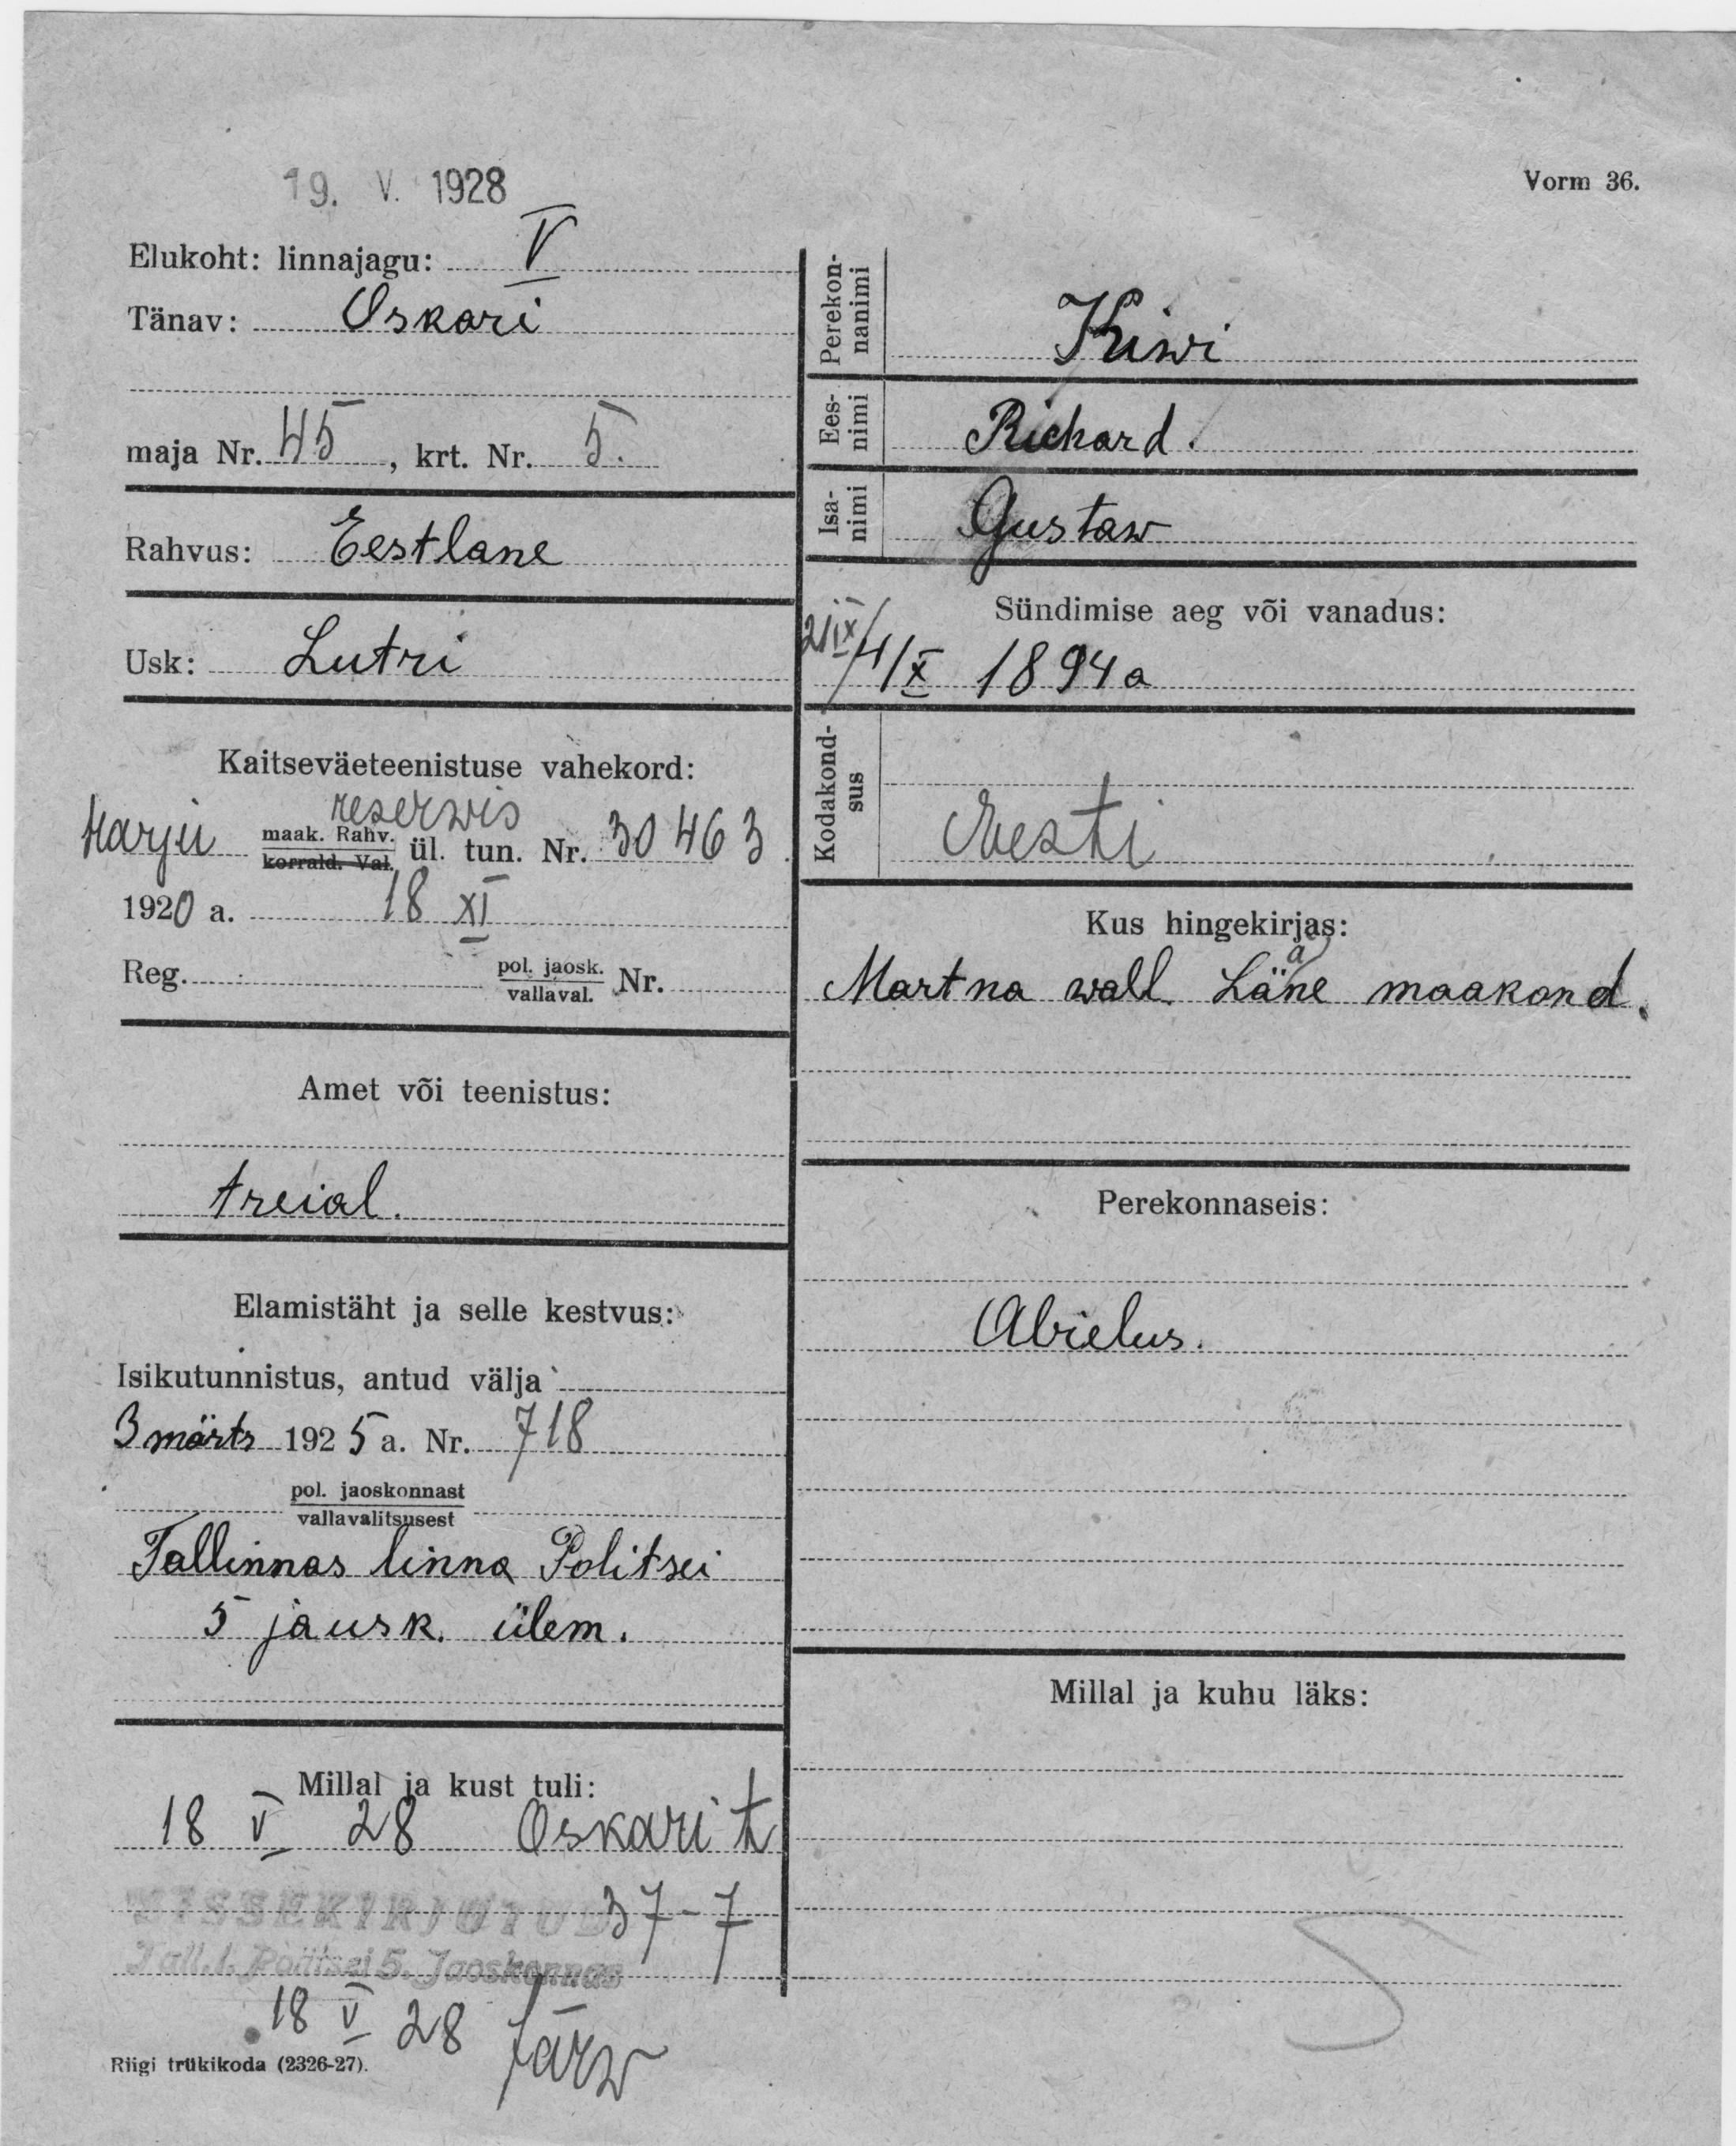 19. V. 1928
Vorm 36.
Elukoht: linnajagu: V
Tänav: Oskari
maja Nr. 45, krt. Nr. 5.
Rahvus: Eestlane
Usk: Lutri
Kaitseväeteenistuse vahekord:
reserwis
Harju maak. Rahv. ül. tun. Nr. 30463
korrald. Val.
1920 a. 18 XI
Reg. pol. jaosk. Nr.
vallaval.
Amet või teenistus:
treial.
Elamistäht ja selle kestvus:
Isikutunnistus, antud välja
3 märts 1925 a. Nr. 718
pol. jaoskonnast
vallavalitsusest
Tallinnas linna Politsei
5 jausk. ülem.
Millal ja kust tuli:
18 V 28 Oskari t
37-7
SISSEKIRJUTUD
Tall. l. Politsei 5. Jaoskonnas
18 V 28 Järw
Riigi trükikoda (2326-27).
Perekon-
nanimi
Kiwi
Ees-
nimi
Richard.
Isa-
nimi
Gustaw
Sündimise aeg või vanadus:
21/IX
4/X 1894 a
Kodakond-
sus
Eesti
Kus hingekirjas:
a
Martna wall. Läne maakond.
Perekonnaseis:
Abielus.
Millal ja kuhu läks:
5